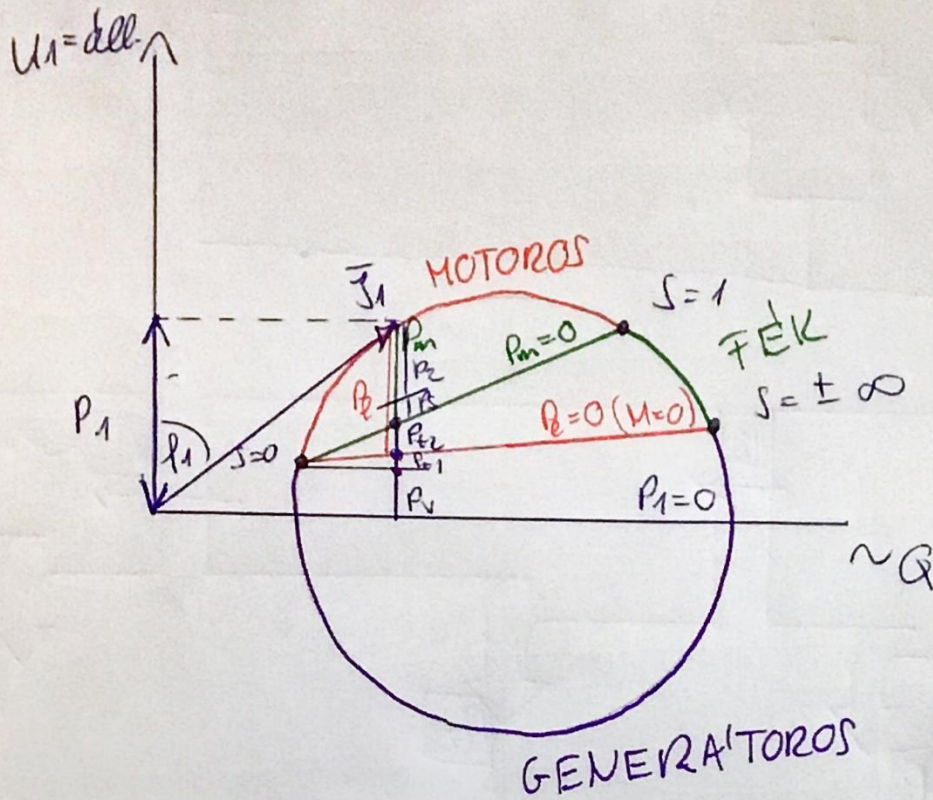 U1=áll.
MOTOROS
J̅1
S=1
FÉK
S=±∞
Pm
Pm=0
P2
Pl=0(M=0)
P1
φ1
S=0
Pt2
Pt1
Pv
P1=0
~Q
GENERÁTOROS